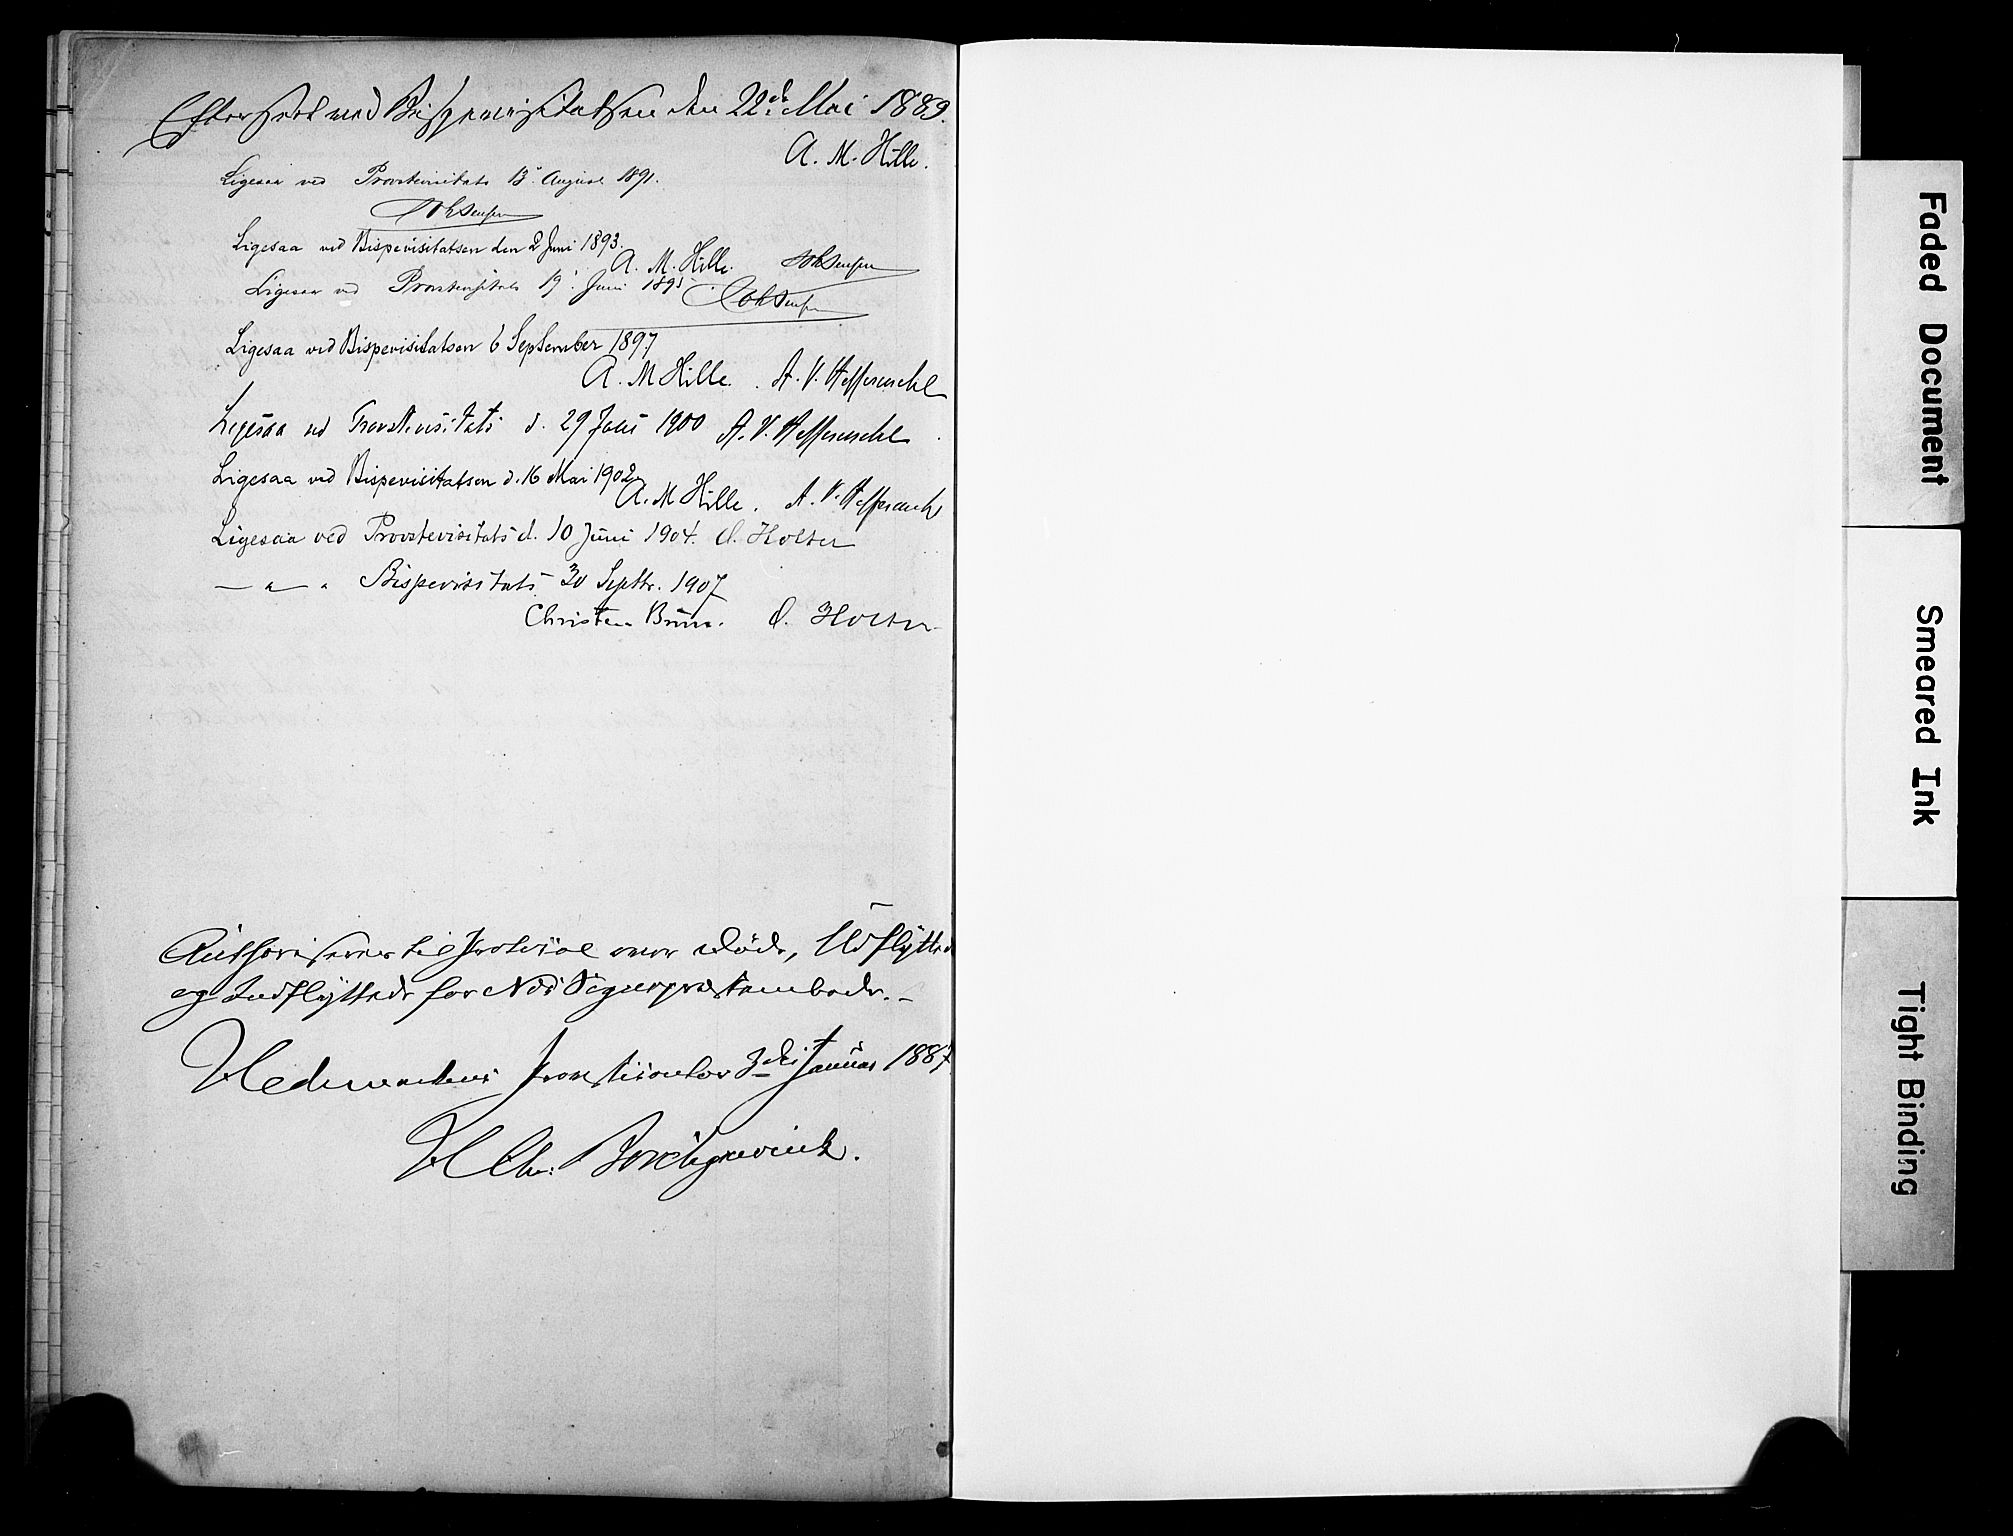 Efterseet ved Bispevisitatsen den 22de Mai 1889.
A. M. Hille.
Ligesaa ved Provstevisitats 13 August 1891.
Ligesaa ved Bispevisitatsen den 2 Juni 1893.
A. M. Hille.
Ligesaa ved Provstevisitats 19 Juni 1895
Ligesaa ved Bispevisitatsen 6 September 1897
A. M Hille. A. V. Heffermehl
Ligesaa ved Provstevisitats d. 29 Juni 1900 A. V. Heffermehl
Ligesaa ved Bispevisitatsen d. 16 Mai 1902
A. M Hille. A. V. Heffermehl
Ligesaa ved Provstevisitats d. 10 Juni 1904. O. Holter
— " — " Bispevisitats 30 Septbr. 1907
Christen Brun. O. Holter
Authoriseres til Protocol over Døde, Udflyttede
og Indflyttede for Præstembede.-
Hedemarkens Provsticontor 3die Januar 1887
H Chr: Borchgrevink.
Faded Document
Smeared Ink
Tight Binding